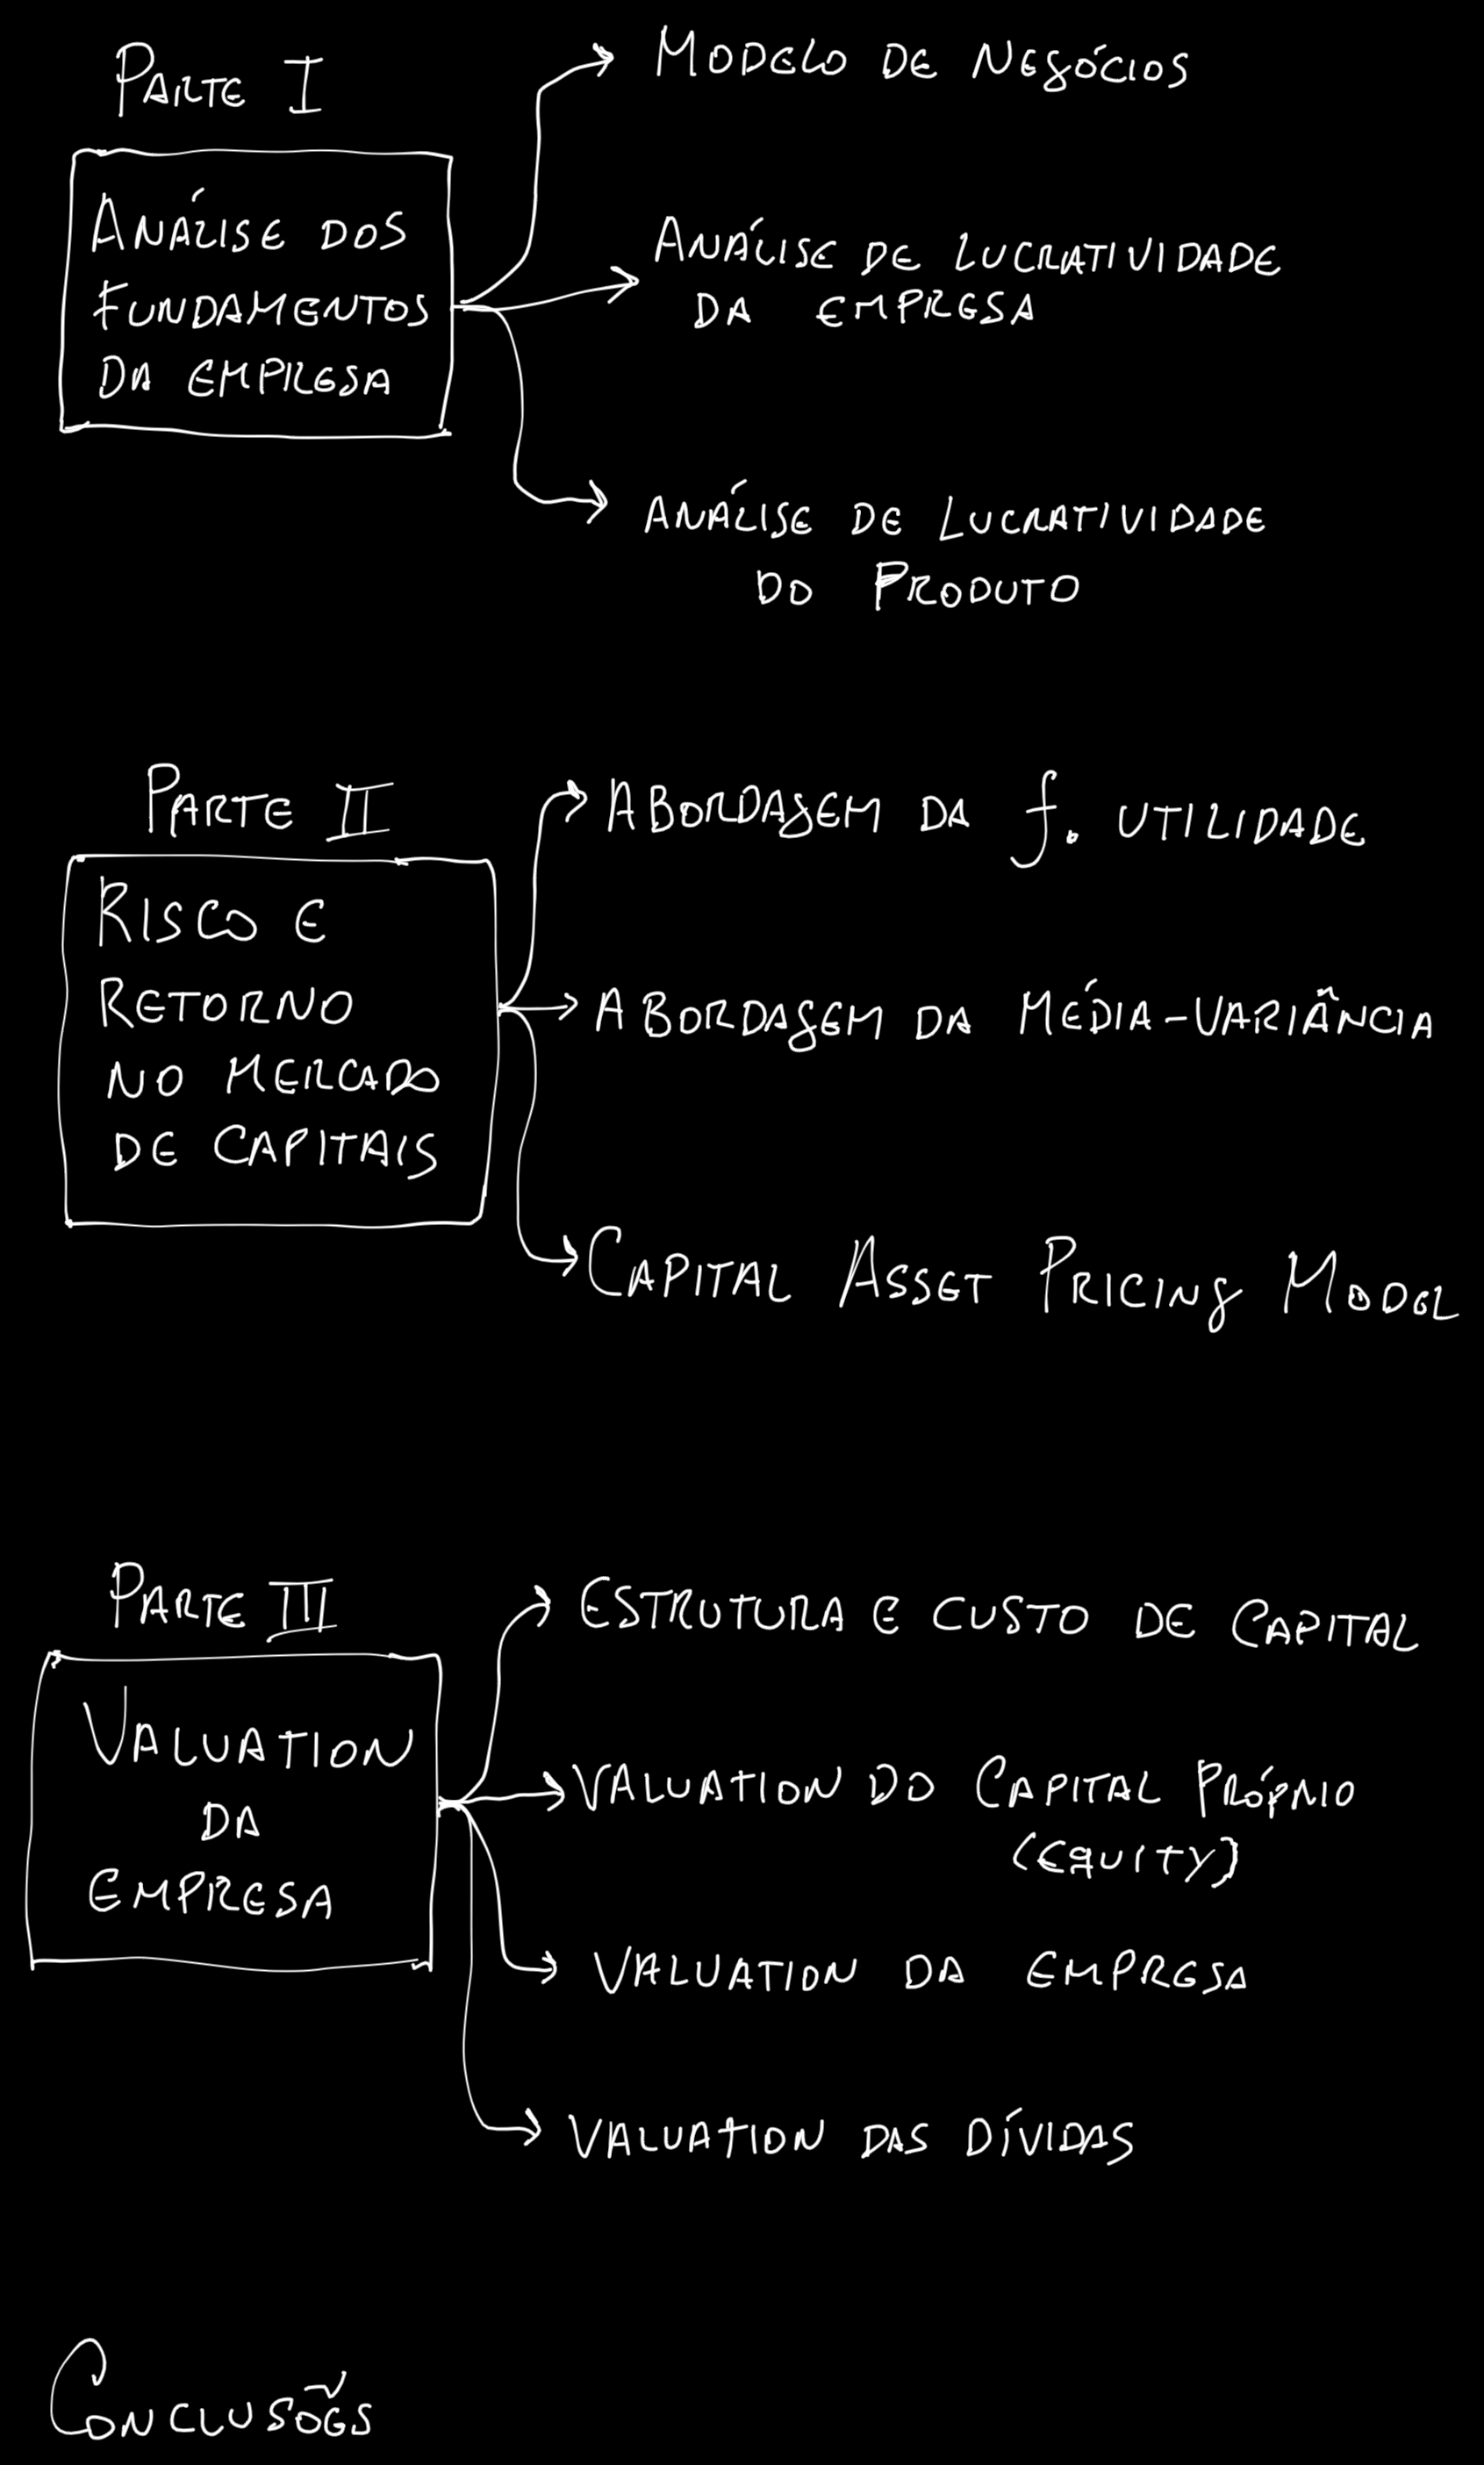 PARTE I
ANÁLISE DOS
FUNDAMENTOS
DA EMPRESA
MODELO DE NEGÓCIOS
ANÁLISE DE LUCRATIVIDADE
DA EMPRESA
ANÁLISE DE LUCRATIVIDADE
DO PRODUTO
PARTE II
RISCO E
RETORNO
NO MERCADO
DE CAPITAIS
ABORDAGEM DA f. UTILIDADE
ABORDAGEM DA MÉDIA-VARIÂNCIA
CAPITAL ASSET PRICING MODEL
PARTE III
VALUATION
DA
EMPRESA
ESTRUTURA E CUSTO DE CAPITAL
VALUATION DO CAPITAL PRÓPRIO
(EQUITY)
VALUATION DA EMPRESA
VALUATION DAS DÍVIDAS
CONCLUSÕES